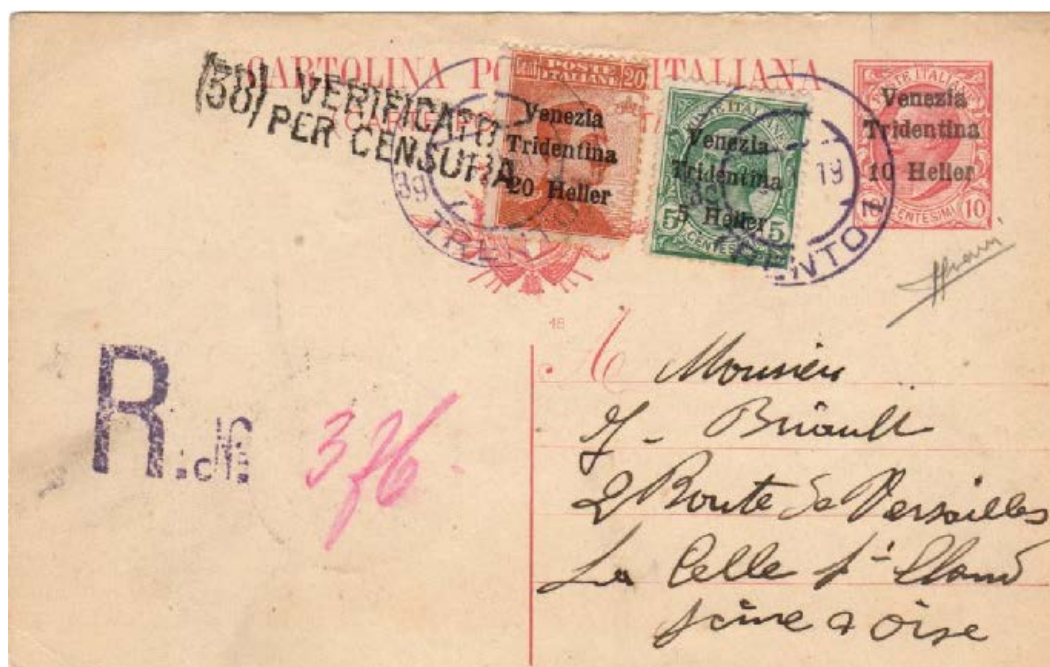 CARTOLINA POSTALE ITALIANA
(38) VERIFICATO
PER CENSURA
Cent. POSTE ITALIANE 20
Venezia
Tridentina
20 Heller
POSTE ITALIANE
Venezia
Tridentina
5 Heller
5 5
CENTESIMI
POSTE ITALIANE
Venezia
Tridentina
10 Heller
10 CENTESIMI 10
39 TRENTO
39 19 TRENTO 2
18
R. N.
376.
A Monsieur
J. Briault
2 Route de Versailles
La Celle St Cloud
Seine & Oise